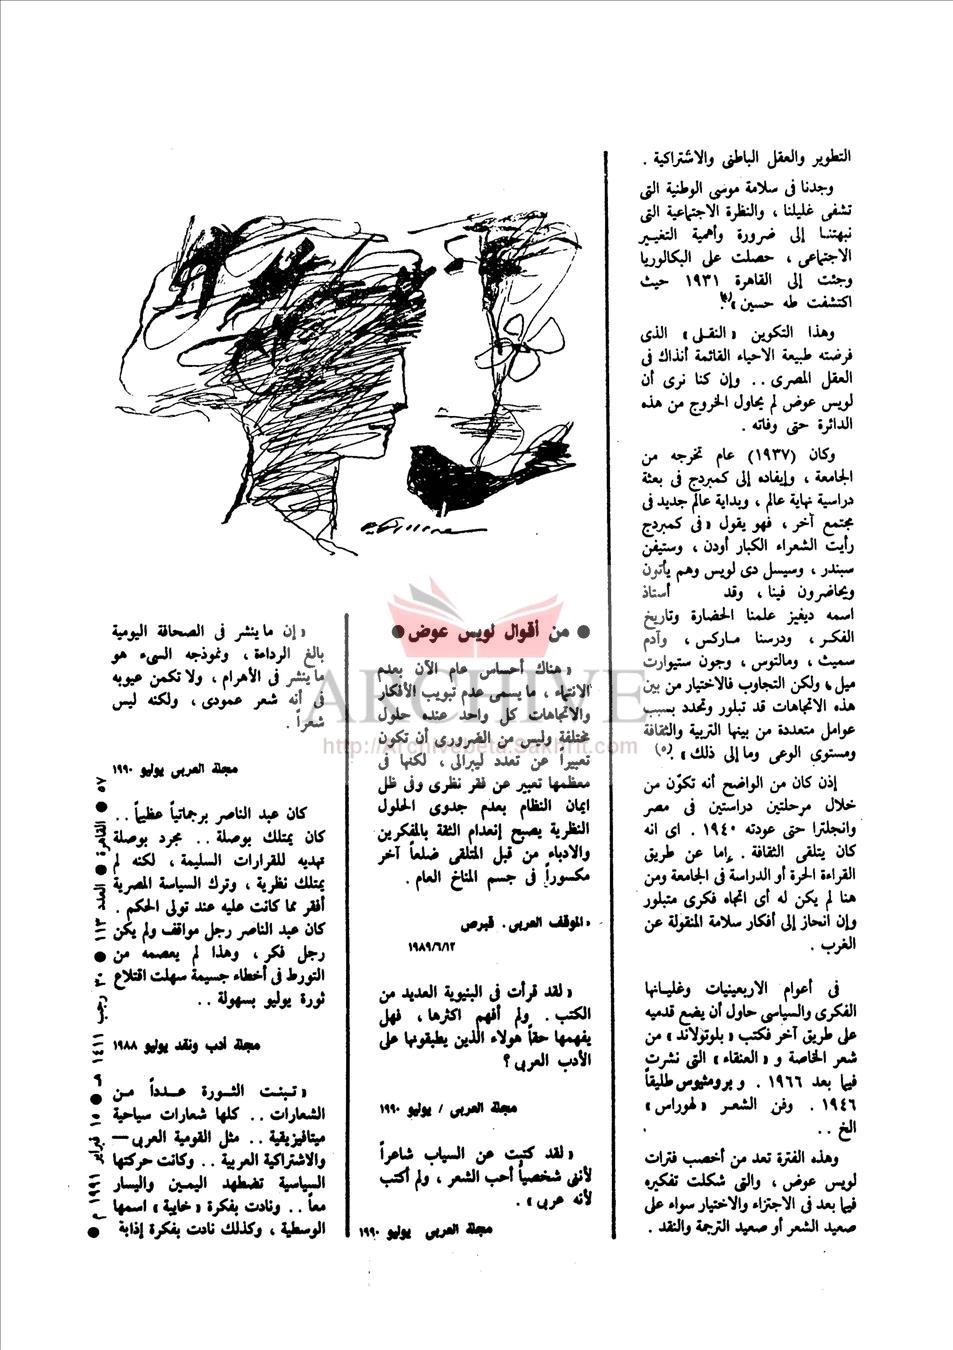 التطوير والعقل الباطنى والاشتراكية .
وجدنا فى سلامة موسى الوطنية التى
تشفى غليلنا ، والنظرة الاجتماعية التى
نبهتنا إلى ضرورة وأهمية التغيير
الاجتماعى ، حصلت على البكالوريا
وجئت إلى القاهرة ١٩٣١ حيث
اكتشفت طه حسين »
وهذا التكوين « النقلى » الذى
فرضته طبيعة الاحياء القائمة أنذاك فى
العقل المصرى .. وإن كنا نرى أن
لويس عوض لم يحاول الخروج من هذه
الدائرة حتى وفاته .
وكان (١٩٣٧) عام تخرجه من
الجامعة ، وإيفاده إلى كمبردج فى بعثة
دراسية نهاية عالم ، وبداية عالم جديد فى
مجتمع آخر ، فهو يقول « فى كمبردج
رأيت الشعراء الكبار أودن ، وستيفن
سبندر ، وسيسل دى لويس وهم يأتون
ويحاضرون فينا ، وقد أستاذ
اسمه ديغيز علمنا الحضارة وتاريخ
الفكر ، ودرسنا ماركس ، وآدم
سميث ، ومالتوس ، وجون ستيوارت
ميل ، ولكن التجاوب فالاختيار من بين
هذه الاتجاهات قد تبلور وتحدد بسبب
عوامل متعددة من بينها التربية والثقافة
ومستوى الوعى وما إلى ذلك » (٥)
إذن كان من الواضح أنه تكوّن من
خلال مرحلتين دراستين فى مصر
وانجلترا حتى عودته ١٩٤٠ . اى انه
كان يتلقى الثقافة . إما عن طريق
القراءة الحرة أو الدراسة فى الجامعة ومن
هنا لم يكن له أى اتجاه فكرى متبلور
وإن انحاز إلى أفكار سلامة المنقولة عن
الغرب .
فى أعوام الاربعينيات وغليانها
الفكرى والسياسى حاول أن يضع قدميه
على طريق آخر فكتب « بلوتولاند » من
شعر الخاصة و « العنقاء » التى نشرت
فيما بعد ١٩٦٦ . و برومثيوس طليقاً
١٩٤٦ . وفن الشعر « لهوراس »
الخ ..
وهذه الفترة تعد من أخصب فترات
لويس عوض ، والتى شكلت تفكيره
فيما بعد فى الاجتزاء والاختيار سواء على
صعيد الشعر أو صعيد الترجمة والنقد .
● من أقوال لويس عوض ●
« هناك أحساس عام الآن بعدم
الانتهاء ، ما يسمى عدم تبويب الأفكار
والاتجاهات كل واحد عنده حلول
مختلفة وليس من الضرورى أن تكون
تعبيراً عن تعدد ليبرالى ، لكنها فى
معظمها تعبير عن فقر نظرى وفى ظل
ايمان النظام بعدم جدوى الحلول
النظرية يصبح إنعدام الثقة بالمفكرين
والادباء من قبل المتلقى ضلعاً آخر
مكسوراً فى جسم المناخ العام .
« الموقف العربى . قبرص
١٩٨٩/٦/١٢
« لقد قرأت فى البنيوية العديد من
الكتب . ولم أفهم اكثرها ، فهل
يفهمها حقاً هولاء الذين يطبقونها على
الأدب العربى ؟
مجلة العربى / يوليو ١٩٩٠
« لقد كتبت عن السياب شاعراً
لأنى شخصياً أحب الشعر ، ولم أكتب
لأنه عربى » .
مجلة العربى يوليو ١٩٩٠
« إن ما ينشر فى الصحافة اليومية
بالغ الرداءة ، ونموذجه السىء هو
ما ينشر فى الأهرام ، ولا تكمن عيوبه
فى أنه شعر عمودى ، ولكنه ليس
شعراً .
مجلة العربى يوليو ١٩٩٠
كان عبد الناصر برجماتياً عظيماً ..
كان يمتلك بوصلة .. مجرد بوصلة
تهديه للقرارات السليمة ، لكنه لم
يمتلك نظرية ، وترك السياسة المصرية
أفقر مما كانت عليه عند تولى الحكم .
كان عبد الناصر رجل مواقف ولم يكن
رجل فكر ، وهذا لم يعصمه من
التورط فى أخطاء جسيمة سهلت اقتلاع
ثورة يوليو بسهولة ..
مجلة أدب ونقد يوليو ١٩٨٨
« تبنت الثورة عدداً من
الشعارات .. كلها شعارات سياحية
ميتافيزيقية .. مثل القومية العربى —
والاشتراكية العربية .. وكانت حركتها
السياسية تضطهد اليمين واليسار
معاً .. ونادت بفكرة « خايبة » اسمها
الوسطية ، وكذلك نادت بفكرة إذابة
٥٧ ● القاهرة ● العدد ١١٣ ● ٣٠ رجب ١٤١١ هـ ● ١٥ فبراير ١٩٩١ م ●
ARCHIVE
http://Archivebeta.Sakhrit.com